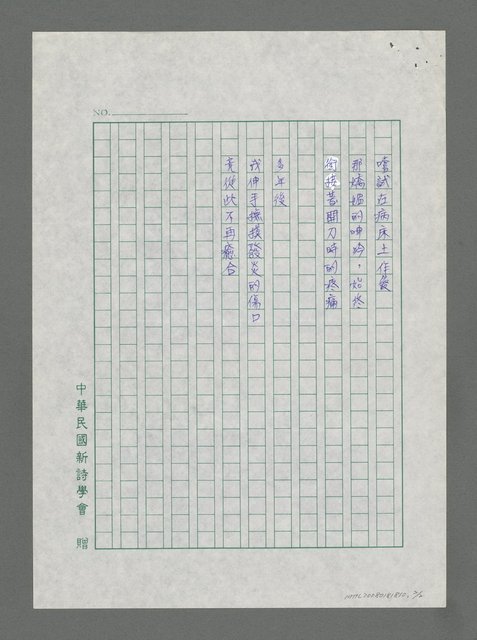 NO.
嚐試在病床上作愛
那嬌媚的呻吟，始終
銜接著開刀時的疼痛
多年後
我伸手撫摸發炎的傷口
竟從此不再癒合
中華民國新詩學會 贈